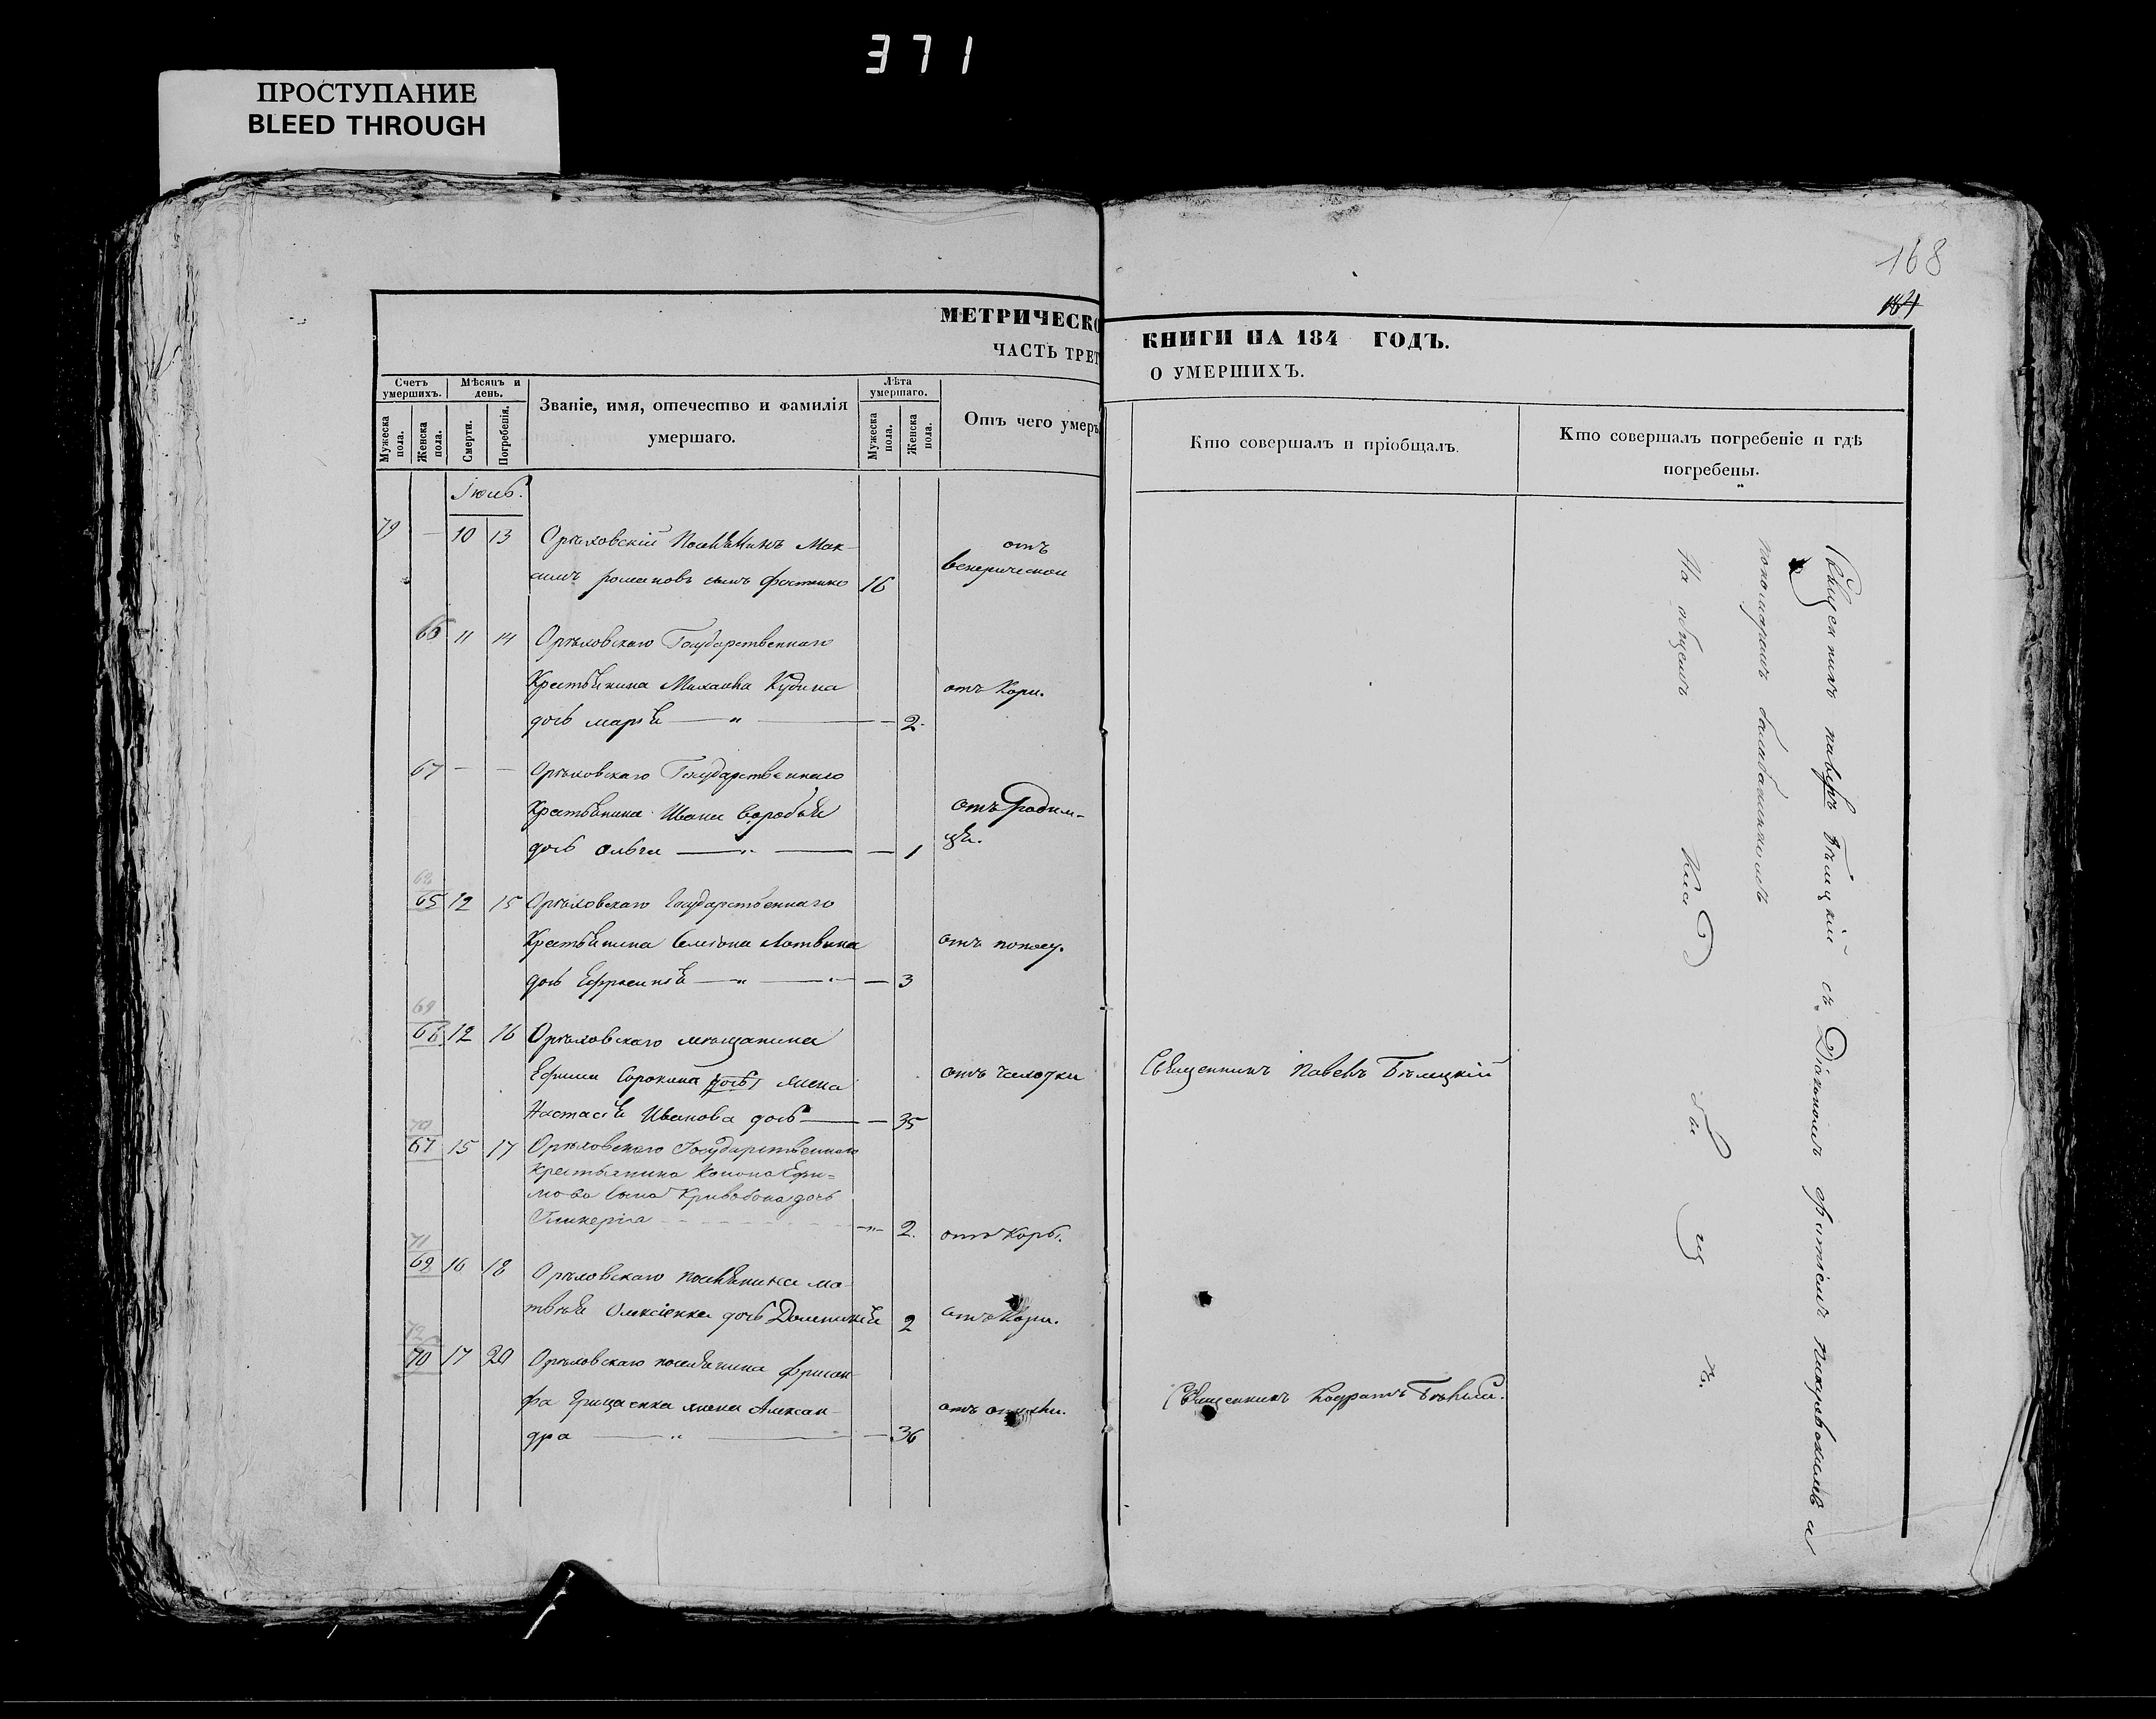 371
ПРОСТУПАНИЕ
BLEED THROUGH
168
МЕТРИЧЕСКО
ЧАСТЬ ТРЕТ
КНИГИ НА 184 ГОДЪ.
О УМЕРШИХЪ.
Счетъ умершихъ.
Мужеска пола.
Женска пола.
Мѣсяцъ и день.
Смерти.
Погребенія.
Званіе, имя, отечество и фамилія
умершаго.
Лѣта умершаго.
Мужеска пола.
Женска пола.
Отъ чего умеръ
Кто совершалъ и пріобщалъ.
Кто совершалъ погребеніе и гдѣ
погребены.
Іюль.
79 — 10 13 Орѣховскій Поселянинъ Мак-
симъ романовъ сынъ 16
отъ
венерической
66 11 14 Орѣховскаго Государственнаго
Крестьянина Михаила Кудина
дочь марія — " — — 2.
отъ Кори.
67 — — Орѣховскаго Государственнаго
Крестьянина Ивана Воробья
дочь Ольга — " — — 1
отъ Родим-
ца.
65 12 15 Орѣховскаго Государственнаго
Крестьянина Семіона Литвина
дочь Ефросинія — " — " — — 3
отъ поносу.
69
68 12 16 Орѣховскаго мѣщанина
Ефима Сорокина дочь жена
Настасія Иванова дочь — — 35
отъ чахотки
Священникъ Павелъ Бѣлецкій
67 15 17 Орѣховскаго Государственнаго
Крестьянина Конона Ефи-
мова сына Кривобока дочь
Гликерія — " — 2.
отъ Корѣ.
71
69 16 18 Орѣховскаго поселянина ма-
твѣя Олексіенка дочь Домникія 2
отъ Кори.
70 17 20 Орѣховскаго поселянина
фа Грищенка жена Алексан-
дра — " — — 36
Священникъ
Священникъ павелъ Бѣлецкій съ Діакономъ и
пономаремъ балабаненкомъ
На общемъ Клад би щ ѣ.